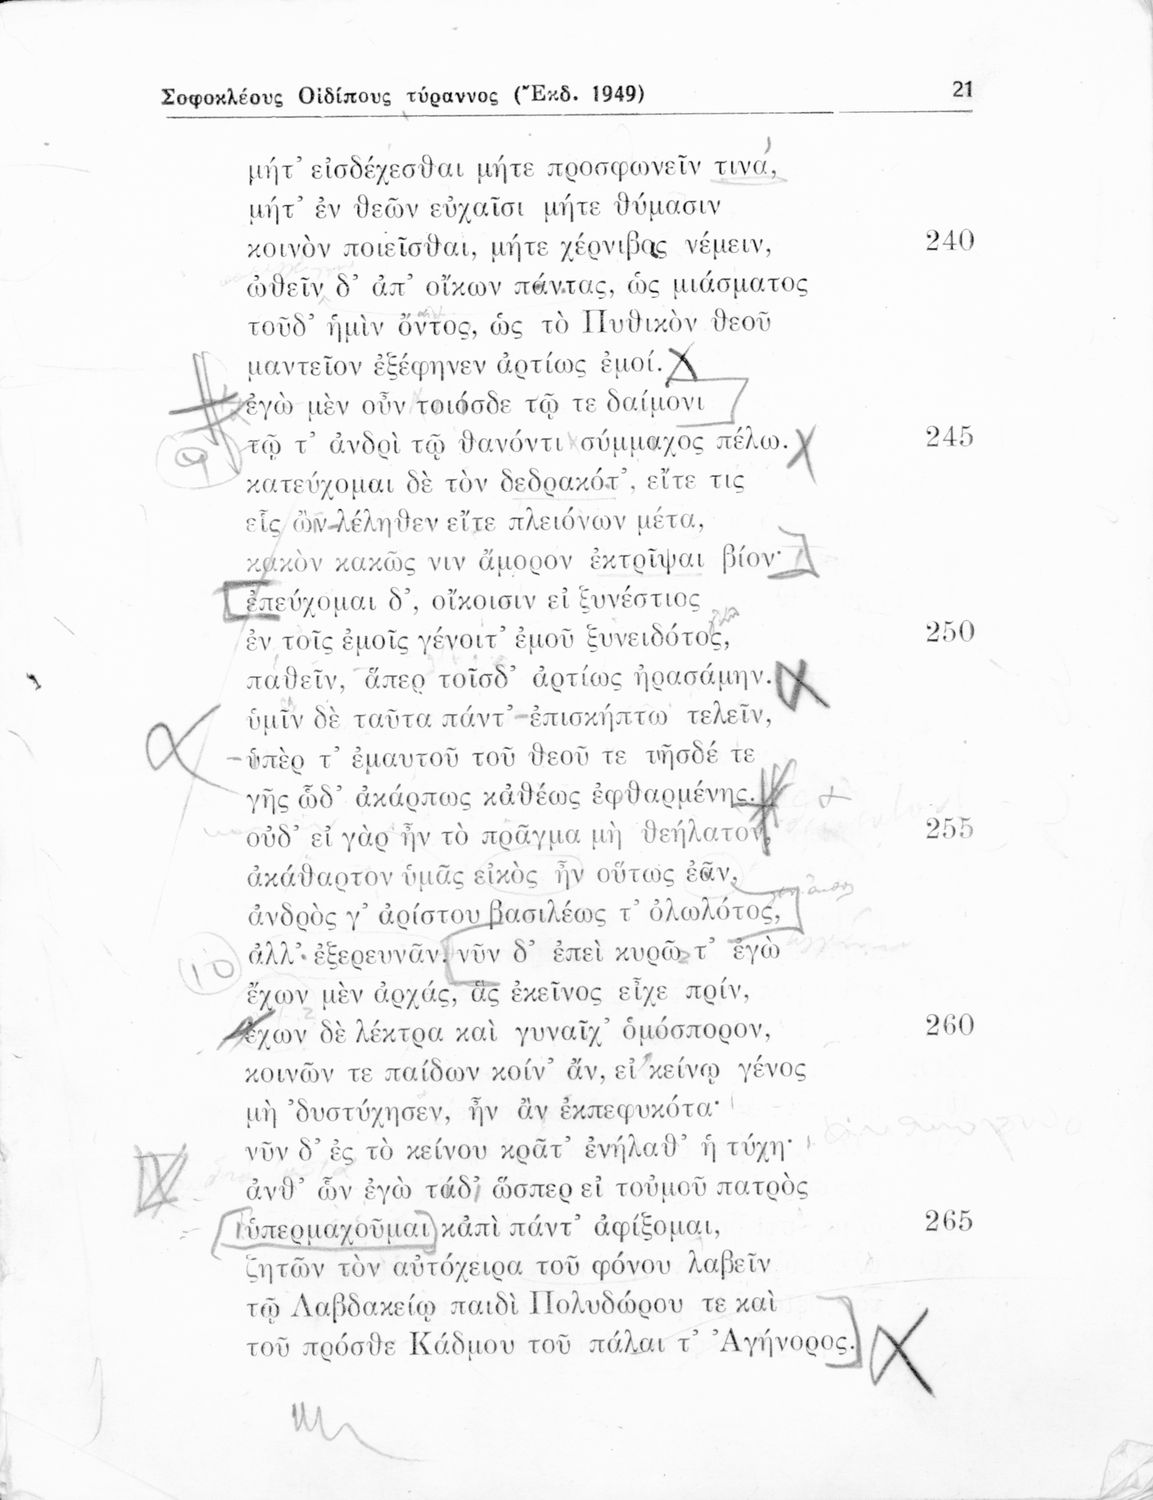 Σοφοκλέους Οἰδίπους τύραννος (Ἔκδ. 1949) 21
μήτ’ εἰσδέχεσθαι μήτε προσφωνεῖν τινά,
μήτ’ ἐν θεῶν εὐχαῖσι μήτε θύμασιν
κοινὸν ποιεῖσθαι, μήτε χέρνιβας νέμειν, 240
ὠθεῖν δ’ ἀπ’ οἴκων πάντας, ὡς μιάσματος
τοῦδ’ ἡμὶν ὄντος, ὡς τὸ Πυθικὸν θεοῦ
μαντεῖον ἐξέφηνεν ἀρτίως ἐμοί.
ἐγὼ μὲν οὖν τοιόσδε τῷ τε δαίμονι
τῷ τ’ ἀνδρὶ τῷ θανόντι σύμμαχος πέλω. 245
9
κατεύχομαι δὲ τὸν δεδρακότ’, εἴτε τις
εἷς ὢν λέληθεν εἴτε πλειόνων μέτα,
κακὸν κακῶς νιν ἄμορον ἐκτρῖψαι βίον·
ἐπεύχομαι δ’, οἴκοισιν εἰ ξυνέστιος
ἐν τοῖς ἐμοῖς γένοιτ’ ἐμοῦ ξυνειδότος, 250
παθεῖν, ἅπερ τοῖσδ’ ἀρτίως ἠρασάμην.
ὑμῖν δὲ ταῦτα πάντ’ ἐπισκήπτω τελεῖν,
ὑπὲρ τ’ ἐμαυτοῦ τοῦ θεοῦ τε τῆσδέ τε
γῆς ὧδ’ ἀκάρπως κἀθέως ἐφθαρμένης.
οὐδ’ εἰ γὰρ ἦν τὸ πρᾶγμα μὴ θεήλατον, 255
ἀκάθαρτον ὑμᾶς εἰκὸς ἦν οὕτως ἐᾶν,
ἀνδρὸς γ’ ἀρίστου βασιλέως τ’ ὀλωλότος,
10
ἀλλ’ ἐξερευνᾶν. νῦν δ’ ἐπεὶ κυρῶ τ’ ἐγὼ
ἔχων μὲν ἀρχάς, ἃς ἐκεῖνος εἶχε πρίν,
ἔχων δὲ λέκτρα καὶ γυναῖχ’ ὁμόσπορον, 260
κοινῶν τε παίδων κοίν’ ἄν, εἰ κείνῳ γένος
μὴ ’δυστύχησεν, ἦν ἂν ἐκπεφυκότα·
νῦν δ’ ἐς τὸ κείνου κρᾶτ’ ἐνήλαθ’ ἡ τύχη·
ἀνθ’ ὧν ἐγὼ τάδ’ ὥσπερ εἰ τοὐμοῦ πατρὸς
ὑπερμαχοῦμαι κἀπὶ πάντ’ ἀφίξομαι, 265
ζητῶν τὸν αὐτόχειρα τοῦ φόνου λαβεῖν
τῷ Λαβδακείῳ παιδὶ Πολυδώρου τε καὶ
τοῦ πρόσθε Κάδμου τοῦ πάλαι τ’ Ἀγήνορος.